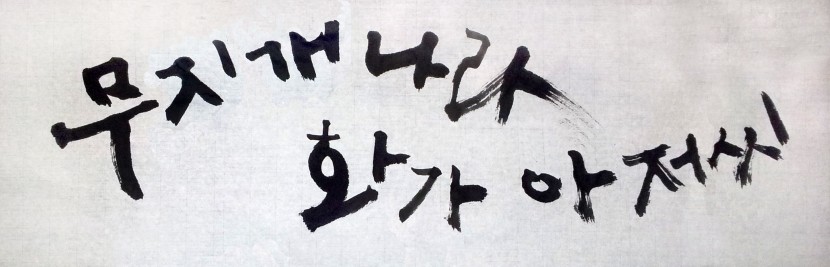 무지개나라
화가 아저씨